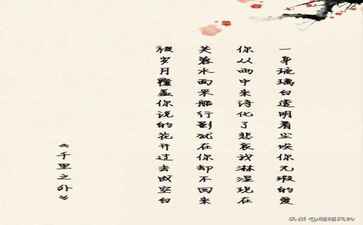 一身琉璃白透明着尘埃你无瑕的爱
你从雨中来诗化了悲哀我淋湿现在
芙蓉水面采船行影犹在你却不回来
被岁月覆盖你说的花开过去成空白
《千里之外》